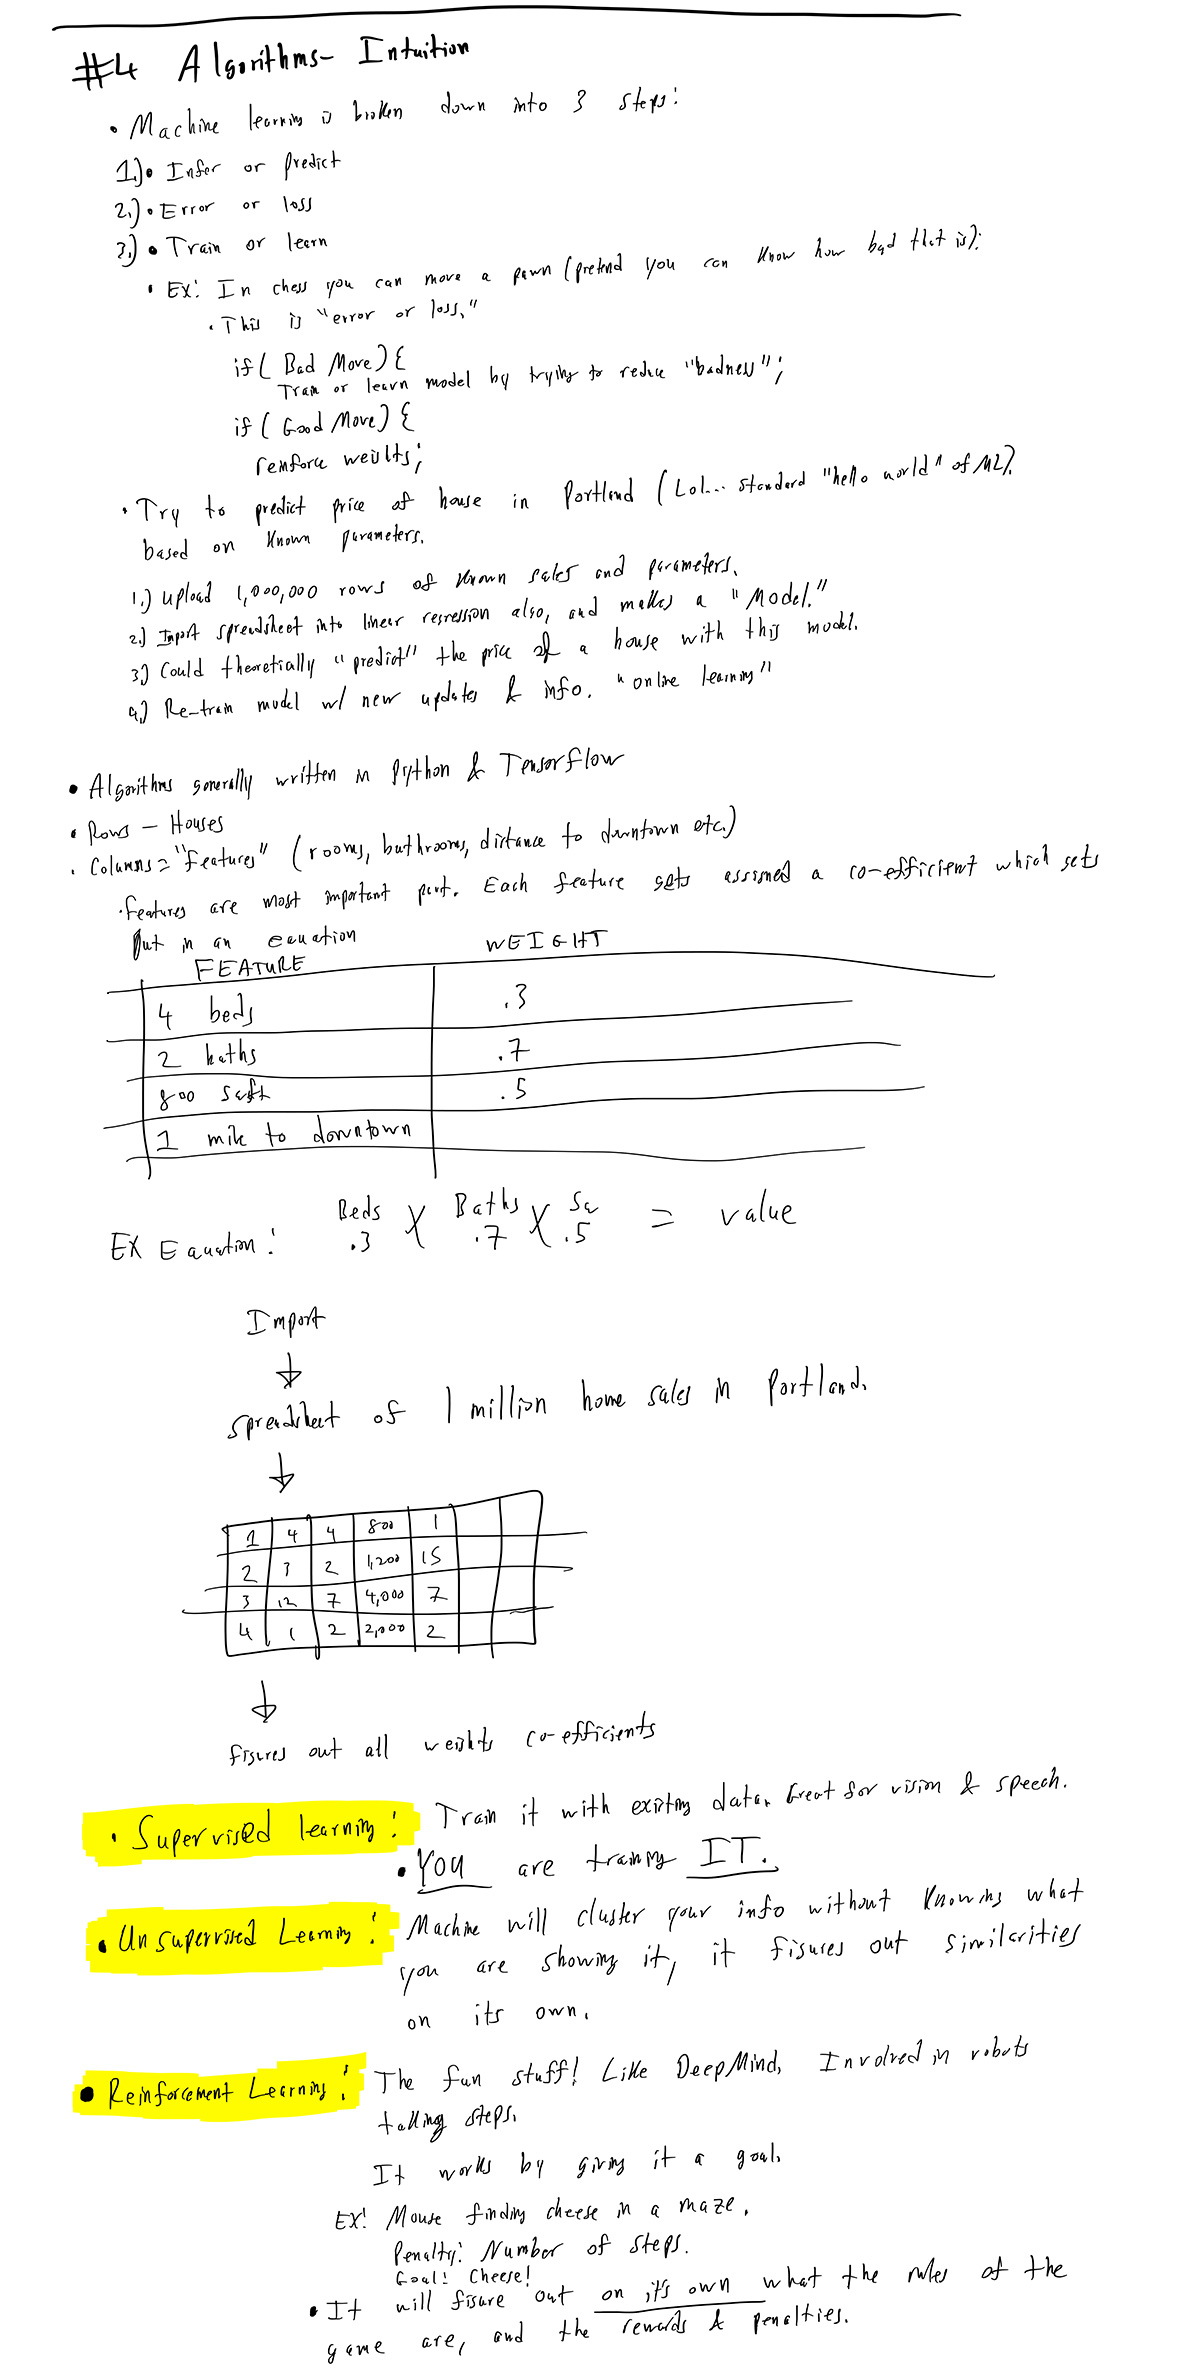 #4 Algorithms- Intuition
• Machine learning is broken down into 3 steps:
1.)• Infer or predict
2.)• Error or loss
3.)• Train or learn
• Ex: In chess you can move a pawn (pretend you can know how bad that is):
• This is "error or loss."
if( Bad Move) {
Train or learn model by trying to reduce "badness";
if ( Good Move) {
reinforce weights;
• Try to predict price of house in Portland (Lol... standard "hello world" of ML).
based on known parameters.
1.) Upload 1,000,000 rows of known sales and parameters.
2.) Import spreadsheet into linear regression algo, and makes a "Model."
3.) Could theoretially "predict" the price of a house with this model.
4.) Re-train model w/ new updates & info. "online learning"
• Algorithms generally written in Python & Tensorflow
• Rows - Houses
• Columns = "Features" (rooms, bathrooms, distance to downtown etc.)
• features are most important part. Each feature gets assigned a co-efficient which gets
Put in an equation
FEATURE WEIGHT
4 beds .3
2 baths .7
800 sqft .5
1 mile to downtown
Beds X Baths X Sq = value
EX Equation: .3 .7 .5
Import
spreadsheet of 1 million home sales in Portland.
1 4 4 800 1
2 3 2 1,200 15
3 12 7 4,000 7
4 1 2 2,000 2
figures out all weights co-efficients
• Supervised learning: Train it with existing data. Great for vision & speech.
• YOU are training IT.
• Unsupervised Learning: Machine will cluster your info without knowing what
you are showing it, it figures out similarities
on its own.
• Reinforcement Learning: The fun stuff! Like DeepMind, Involved in robots
taking steps.
It works by giving it a goal.
EX: Mouse finding cheese in a maze.
Penalty: Number of steps.
Goal: Cheese!
• It will figure out on it's own what the rules of the
game are, and the rewards & penalties.